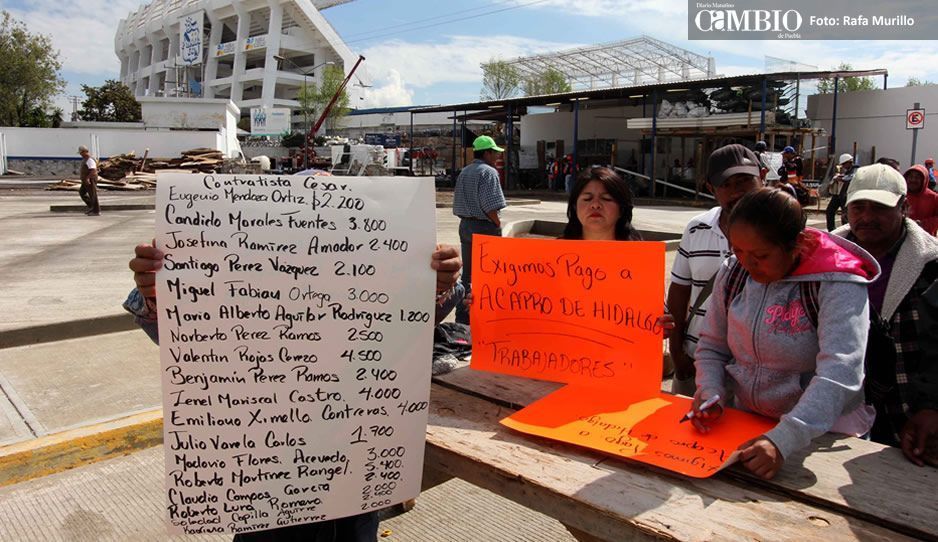 Diario Matutino
CAMBIO
de Puebla
Foto: Rafa Murillo
Contratista Cesar.
Eugenio Mendoza Ortiz. $2.200
Candido Morales Fuentes 3.800
Josefina Ramirez Amador 2.400
Santiago Perez Vazquez 2.100
Miguel Fabian Ortega 3.000
Mario Alberto Aguilar Rodriguez 1.200
Norberto Perez Ramos 2500
Valentin Rojas Cerezo 4.500
Benjamín Perez Ramos 2.400
Irnel Mariscal Castro. 4.000
Emiliano Ximello Contreras. 4.000
Julio Varela Carlos 1.700
Madavio Flores. Acevedo, 3.000
Roberto Martinez Rangel. 3.400.
Claudia Campos Garcia 2.400
Roberto Lura Romero 2.000
Soledad Capilla Aguirre 2.400
Ramirez Gutierrez 2.000
Exigimos Pago a
ACAPRO DE HIDALGO
"TRABAJADORES"
Exigimos
Pago a
de Hidalgo
E